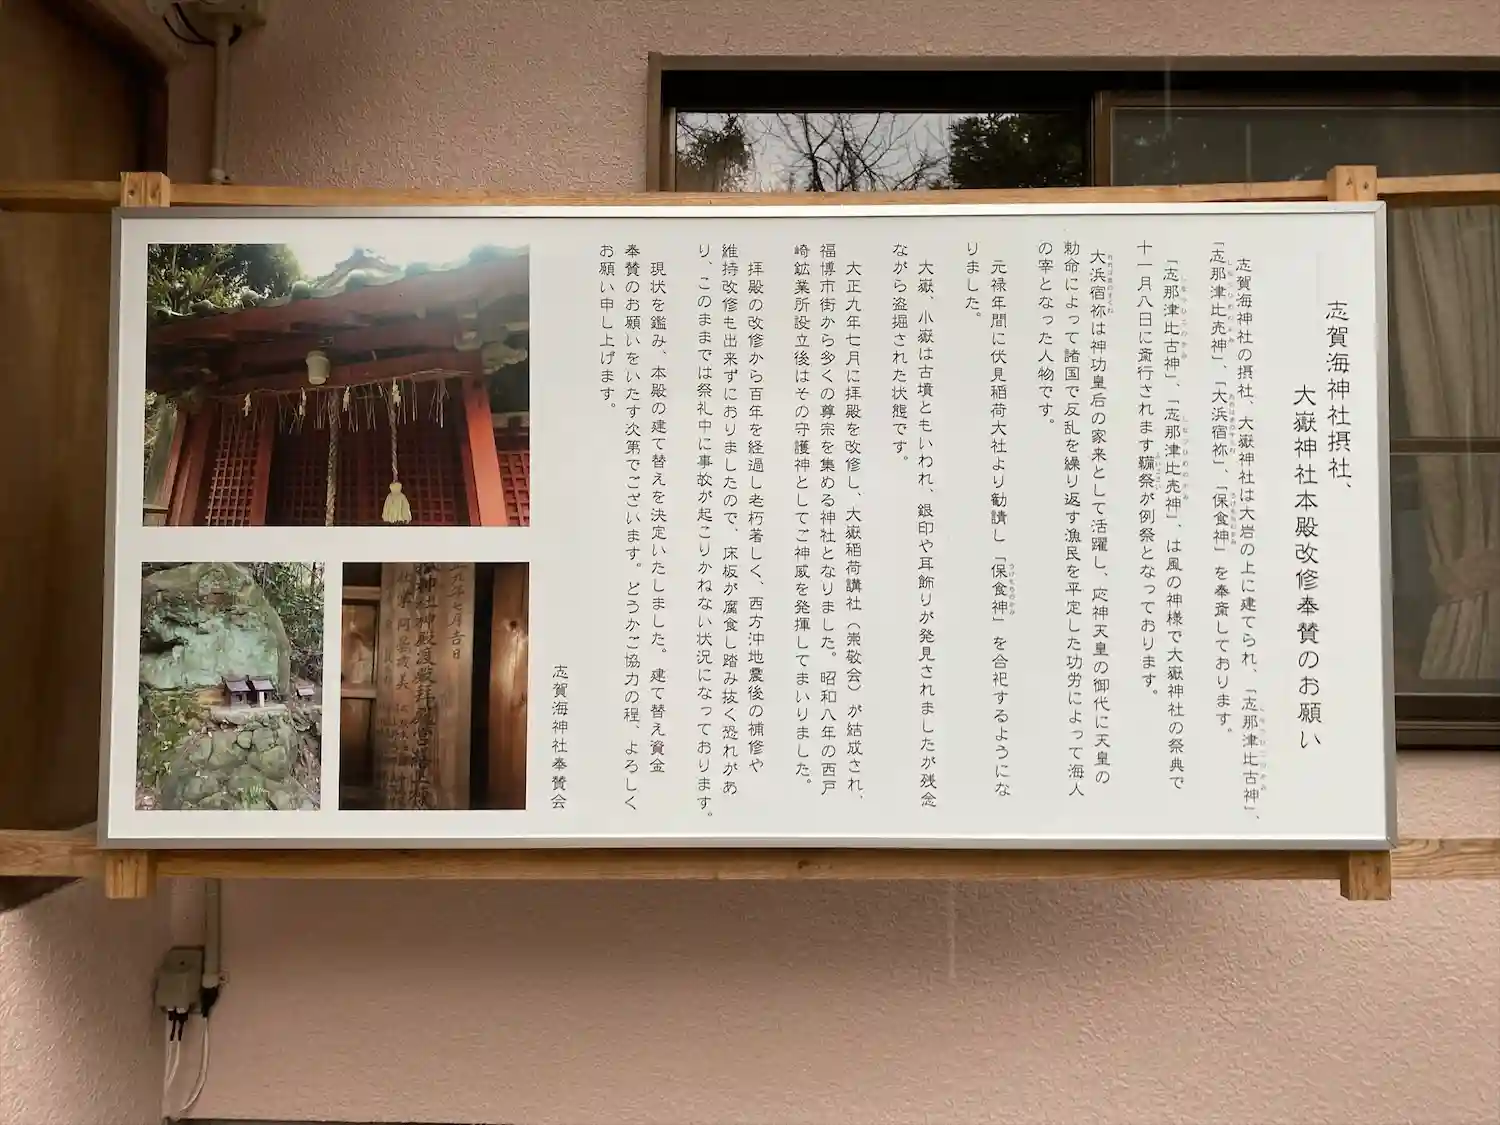 志賀海神社摂社、
大嶽神社本殿改修奉賛のお願い
志賀海神社の摂社、大嶽神社は大岩の上に建てられ、「志那津比古神」、
「志那津比売神」、「大浜宿祢」、「保食神」を奉斎しております。
「志那津比古神」、「志那津比売神」、は風の神様で大嶽神社の祭典で
十一月八日に斎行されます鞴祭が例祭となっております。
大浜宿祢は神功皇后の家来として活躍し、応神天皇の御代に天皇の
勅命によって諸国で反乱を繰り返す漁民を平定した功労によって海人
の宰となった人物です。
元禄年間に伏見稲荷大社より勧請し「保食神」を合祀するようにな
りました。
大嶽、小嶽は古墳ともいわれ、銀印や耳飾りが発見されましたが残念
ながら盗掘された状態です。
大正九年七月に拝殿を改修し、大嶽稲荷講社（崇敬会）が結成され、
福博市街から多くの尊宗を集める神社となりました。昭和八年の西戸
崎鉱業所設立後はその守護神としてご神威を発揮してまいりました。
拝殿の改修から百年を経過し老朽著しく、西方沖地震後の補修や
維持改修も出来ずにおりましたので、床板が腐食し踏み抜く恐れがあ
り、このままでは祭礼中に事故が起こりかねない状況になっております。
現状を鑑み、本殿の建て替えを決定いたしました。建て替え資金
奉賛のお願いをいたす次第でございます。どうかご協力の程、よろしく
お願い申し上げます。
志賀海神社奉賛会
九年七月吉日
神社神殿渡殿拝殿営繕